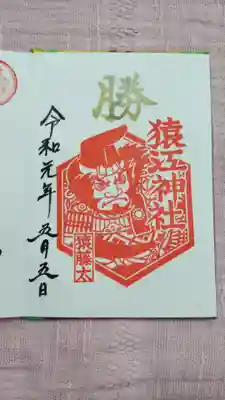 勝
猿江神社
猿藤太
令和元年五月五日